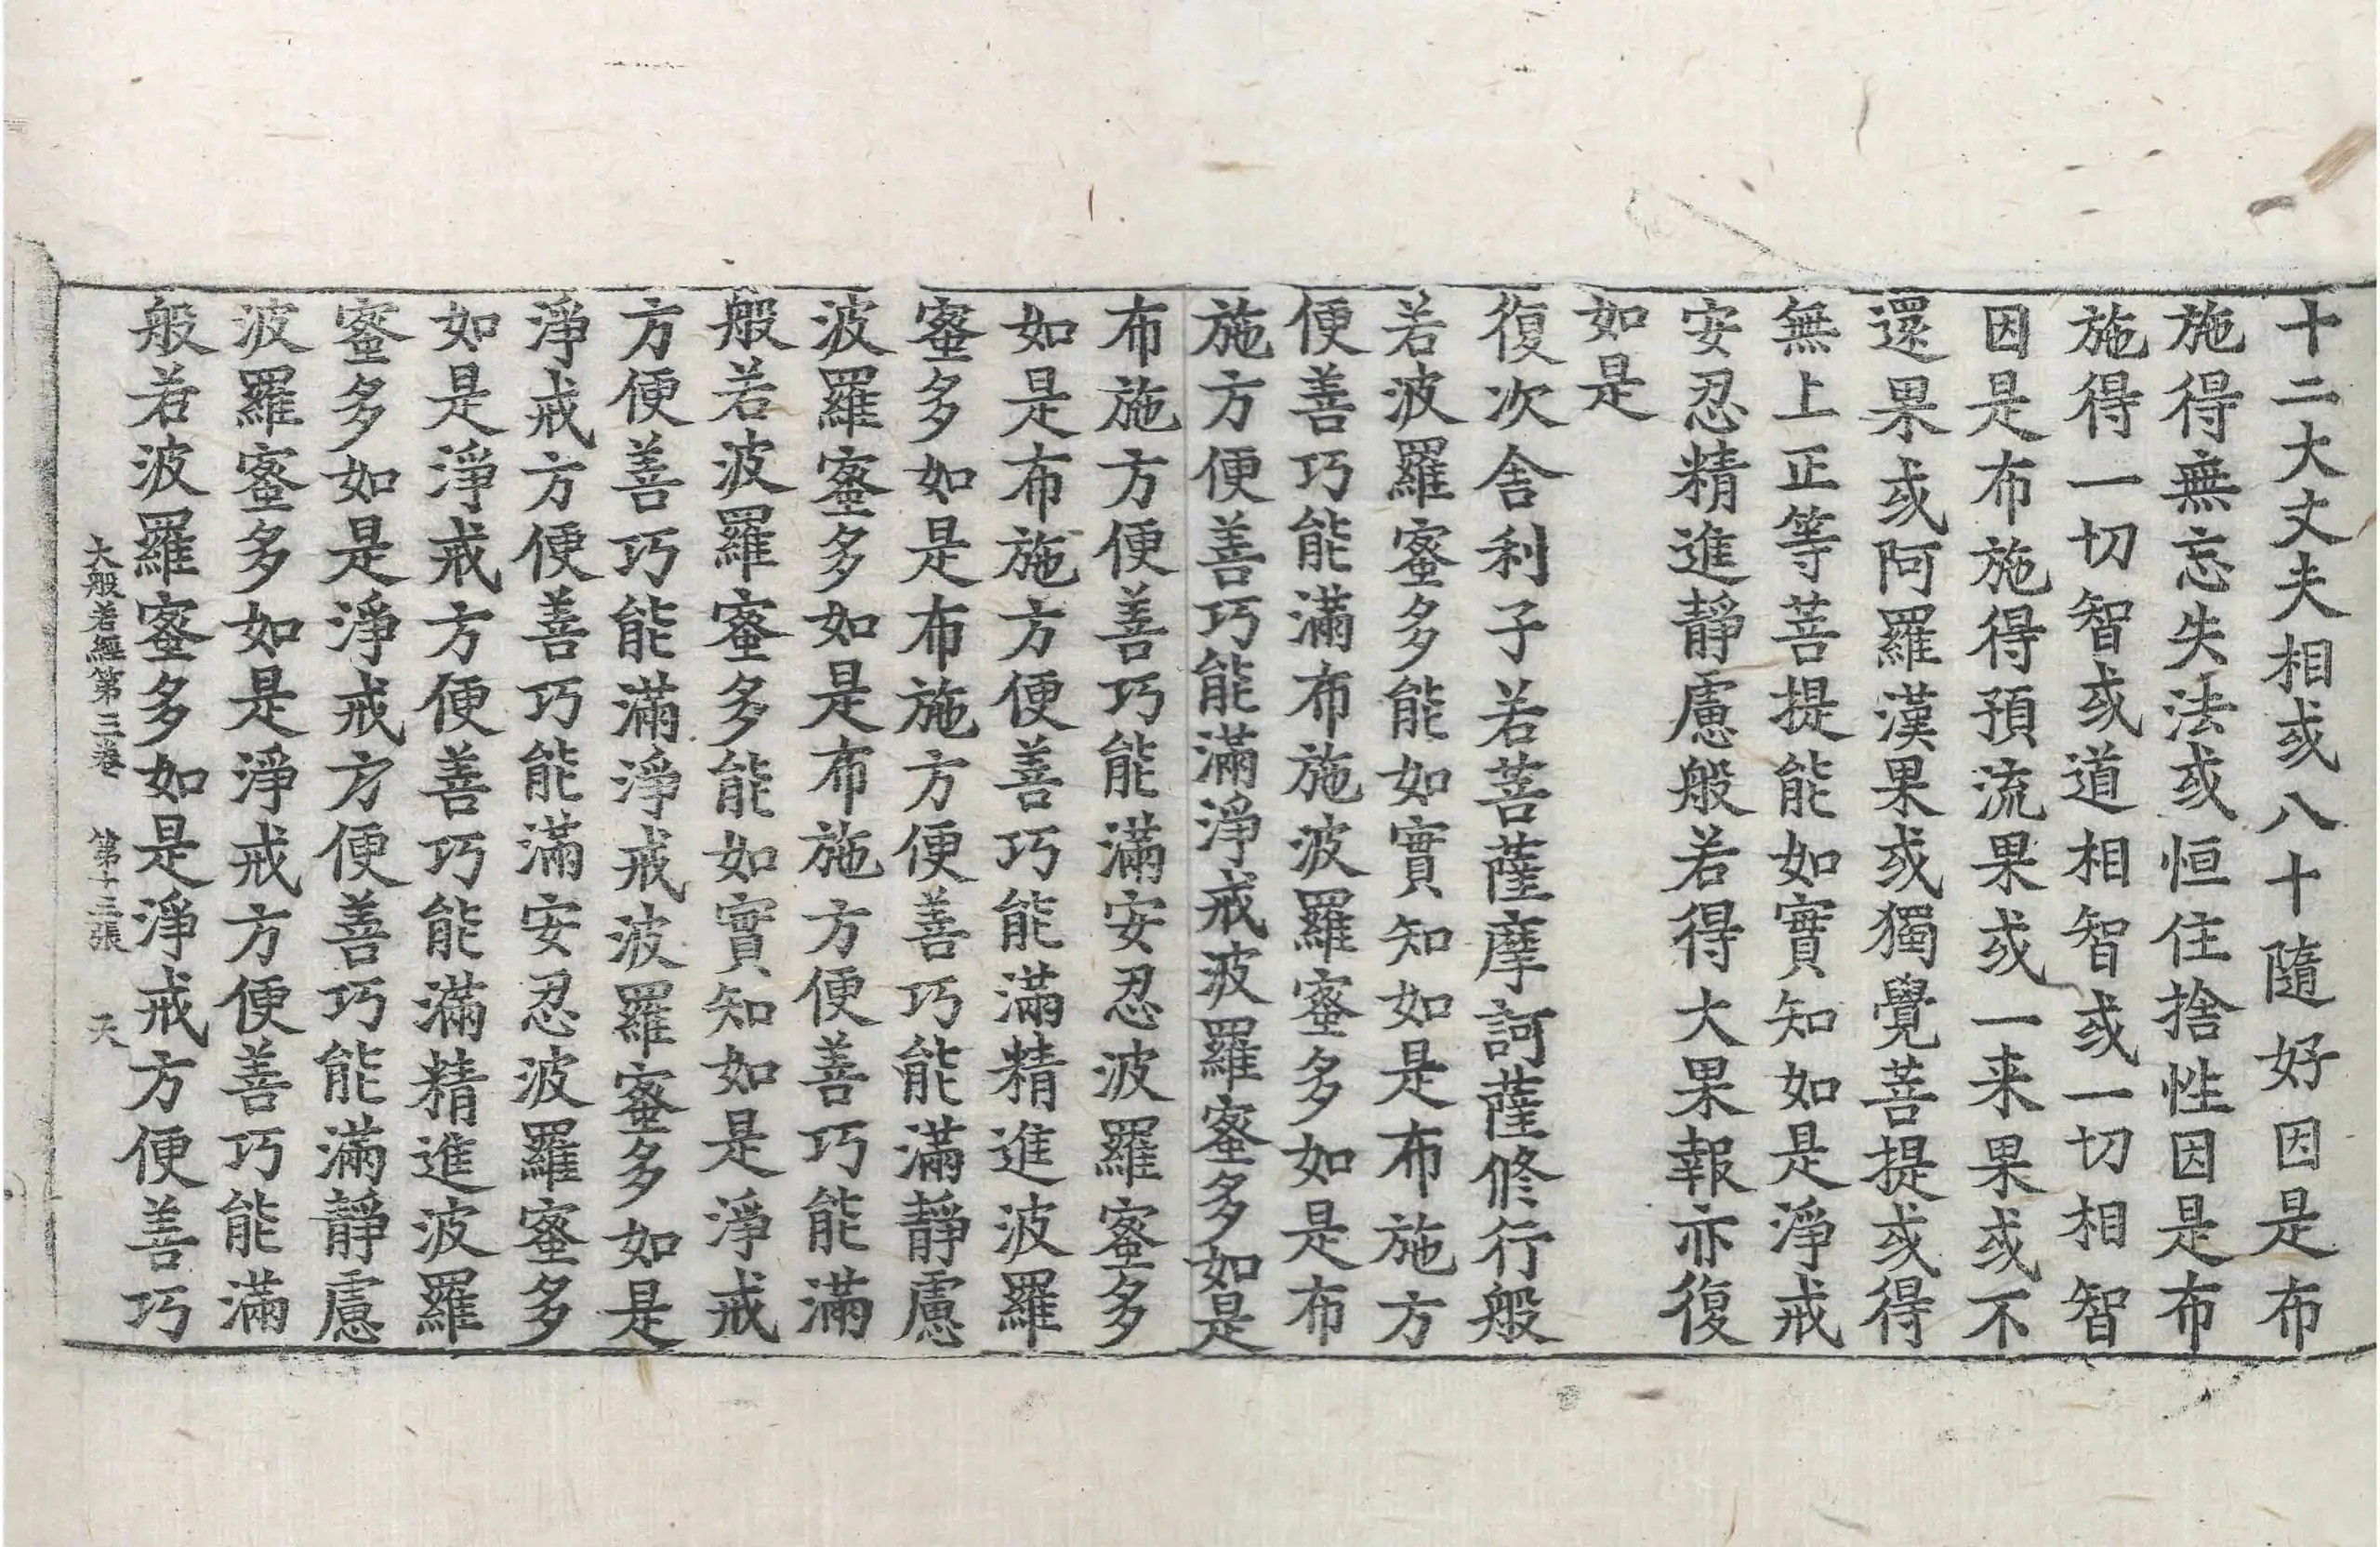 十二大丈夫相或八十隨好因是布
施得無忘失法或恒住捨性因是布
施得一切智或道相智或一切相智
因是布施得預流果或一来果或不
還果或阿羅漢果或獨覺菩提或得
無上正等菩提能如實知如是淨戒
安忍精進靜慮般若得大果報亦復
如是
復次舍利子若菩薩摩訶薩修行般
若波羅蜜多能如實知如是布施方
便善巧能滿布施波羅蜜多如是布
施方便善巧能滿淨戒波羅蜜多如是
布施方便善巧能滿安忍波羅蜜多
如是布施方便善巧能滿精進波羅
蜜多如是布施方便善巧能滿靜慮
波羅蜜多如是布施方便善巧能滿
般若波羅蜜多能如實知如是淨戒
方便善巧能滿淨戒波羅蜜多如是
淨戒方便善巧能滿安忍波羅蜜多
如是淨戒方便善巧能滿精進波羅
蜜多如是淨戒方便善巧能滿靜慮
波羅蜜多如是淨戒方便善巧能滿
般若波羅蜜多如是淨戒方便善巧
大般若經第三卷 第十三張 天